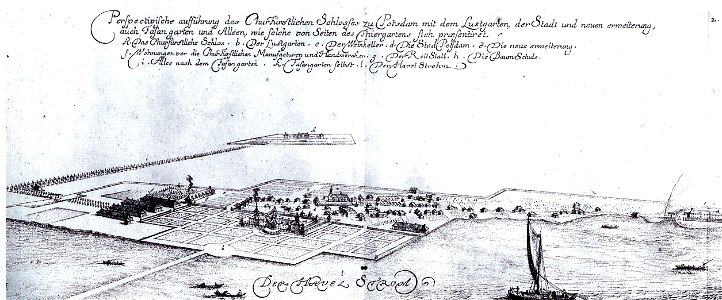 Perspectivische aufführung des Churfürstlichen Schlosses zu Potsdam mit dem Lustgarten, der Stadt und neuen erweiterung,
auch Fasangarten und Alleen, wie solche von Seiten des Thiergartens sich præsentiret.
A. Das Churfürstliche Schlos. b. Der Lustgarten. c. Der Weinkeller. d. Die Stadt Potsdam. e. Die neue erweiterung.
f. Wohnungen vor die Churfürstlichen Manufacturen und g. Der Reit Stall. h. Die Baum Schule.
i. Allee nach dem Fasangarten. k. Fasangarten selbst. l. Der Havel Strohm.
2.
Der Havel Strom